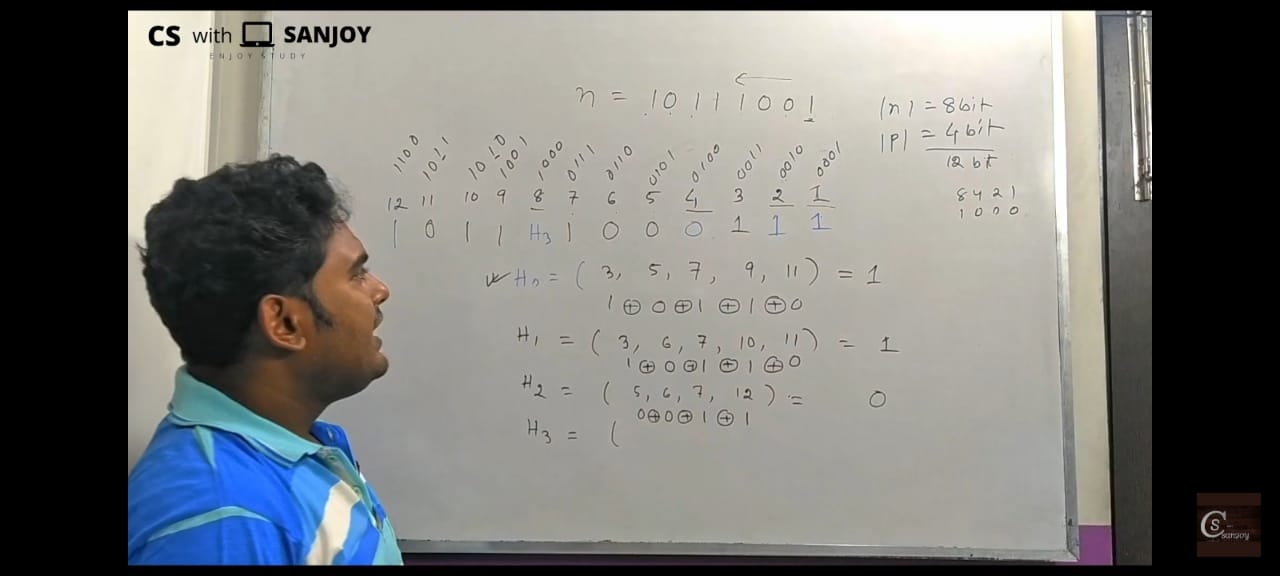 CS with SANJOY
ENJOY STUDY
n = 10111001
|n| = 8bit
|P| = 4bit
12 bit
8 4 2 1
1 0 0 0
1100 1011 1010 1001 1000 0111 0110 0101 0100 0011 0010 0001
12 11 10 9 8 7 6 5 4 3 2 1
1 0 1 1 H3 1 0 0 0 1 1 1
H0 = ( 3, 5, 7, 9, 11 ) = 1
1 ⊕ 0 ⊕ 1 ⊕ 1 ⊕ 0
H1 = ( 3, 6, 7, 10, 11 ) = 1
1 ⊕ 0 ⊕ 1 ⊕ 1 ⊕ 0
H2 = ( 5, 6, 7, 12 ) = 0
0 ⊕ 0 ⊕ 1 ⊕ 1
H3 = (
CS
sanjoy